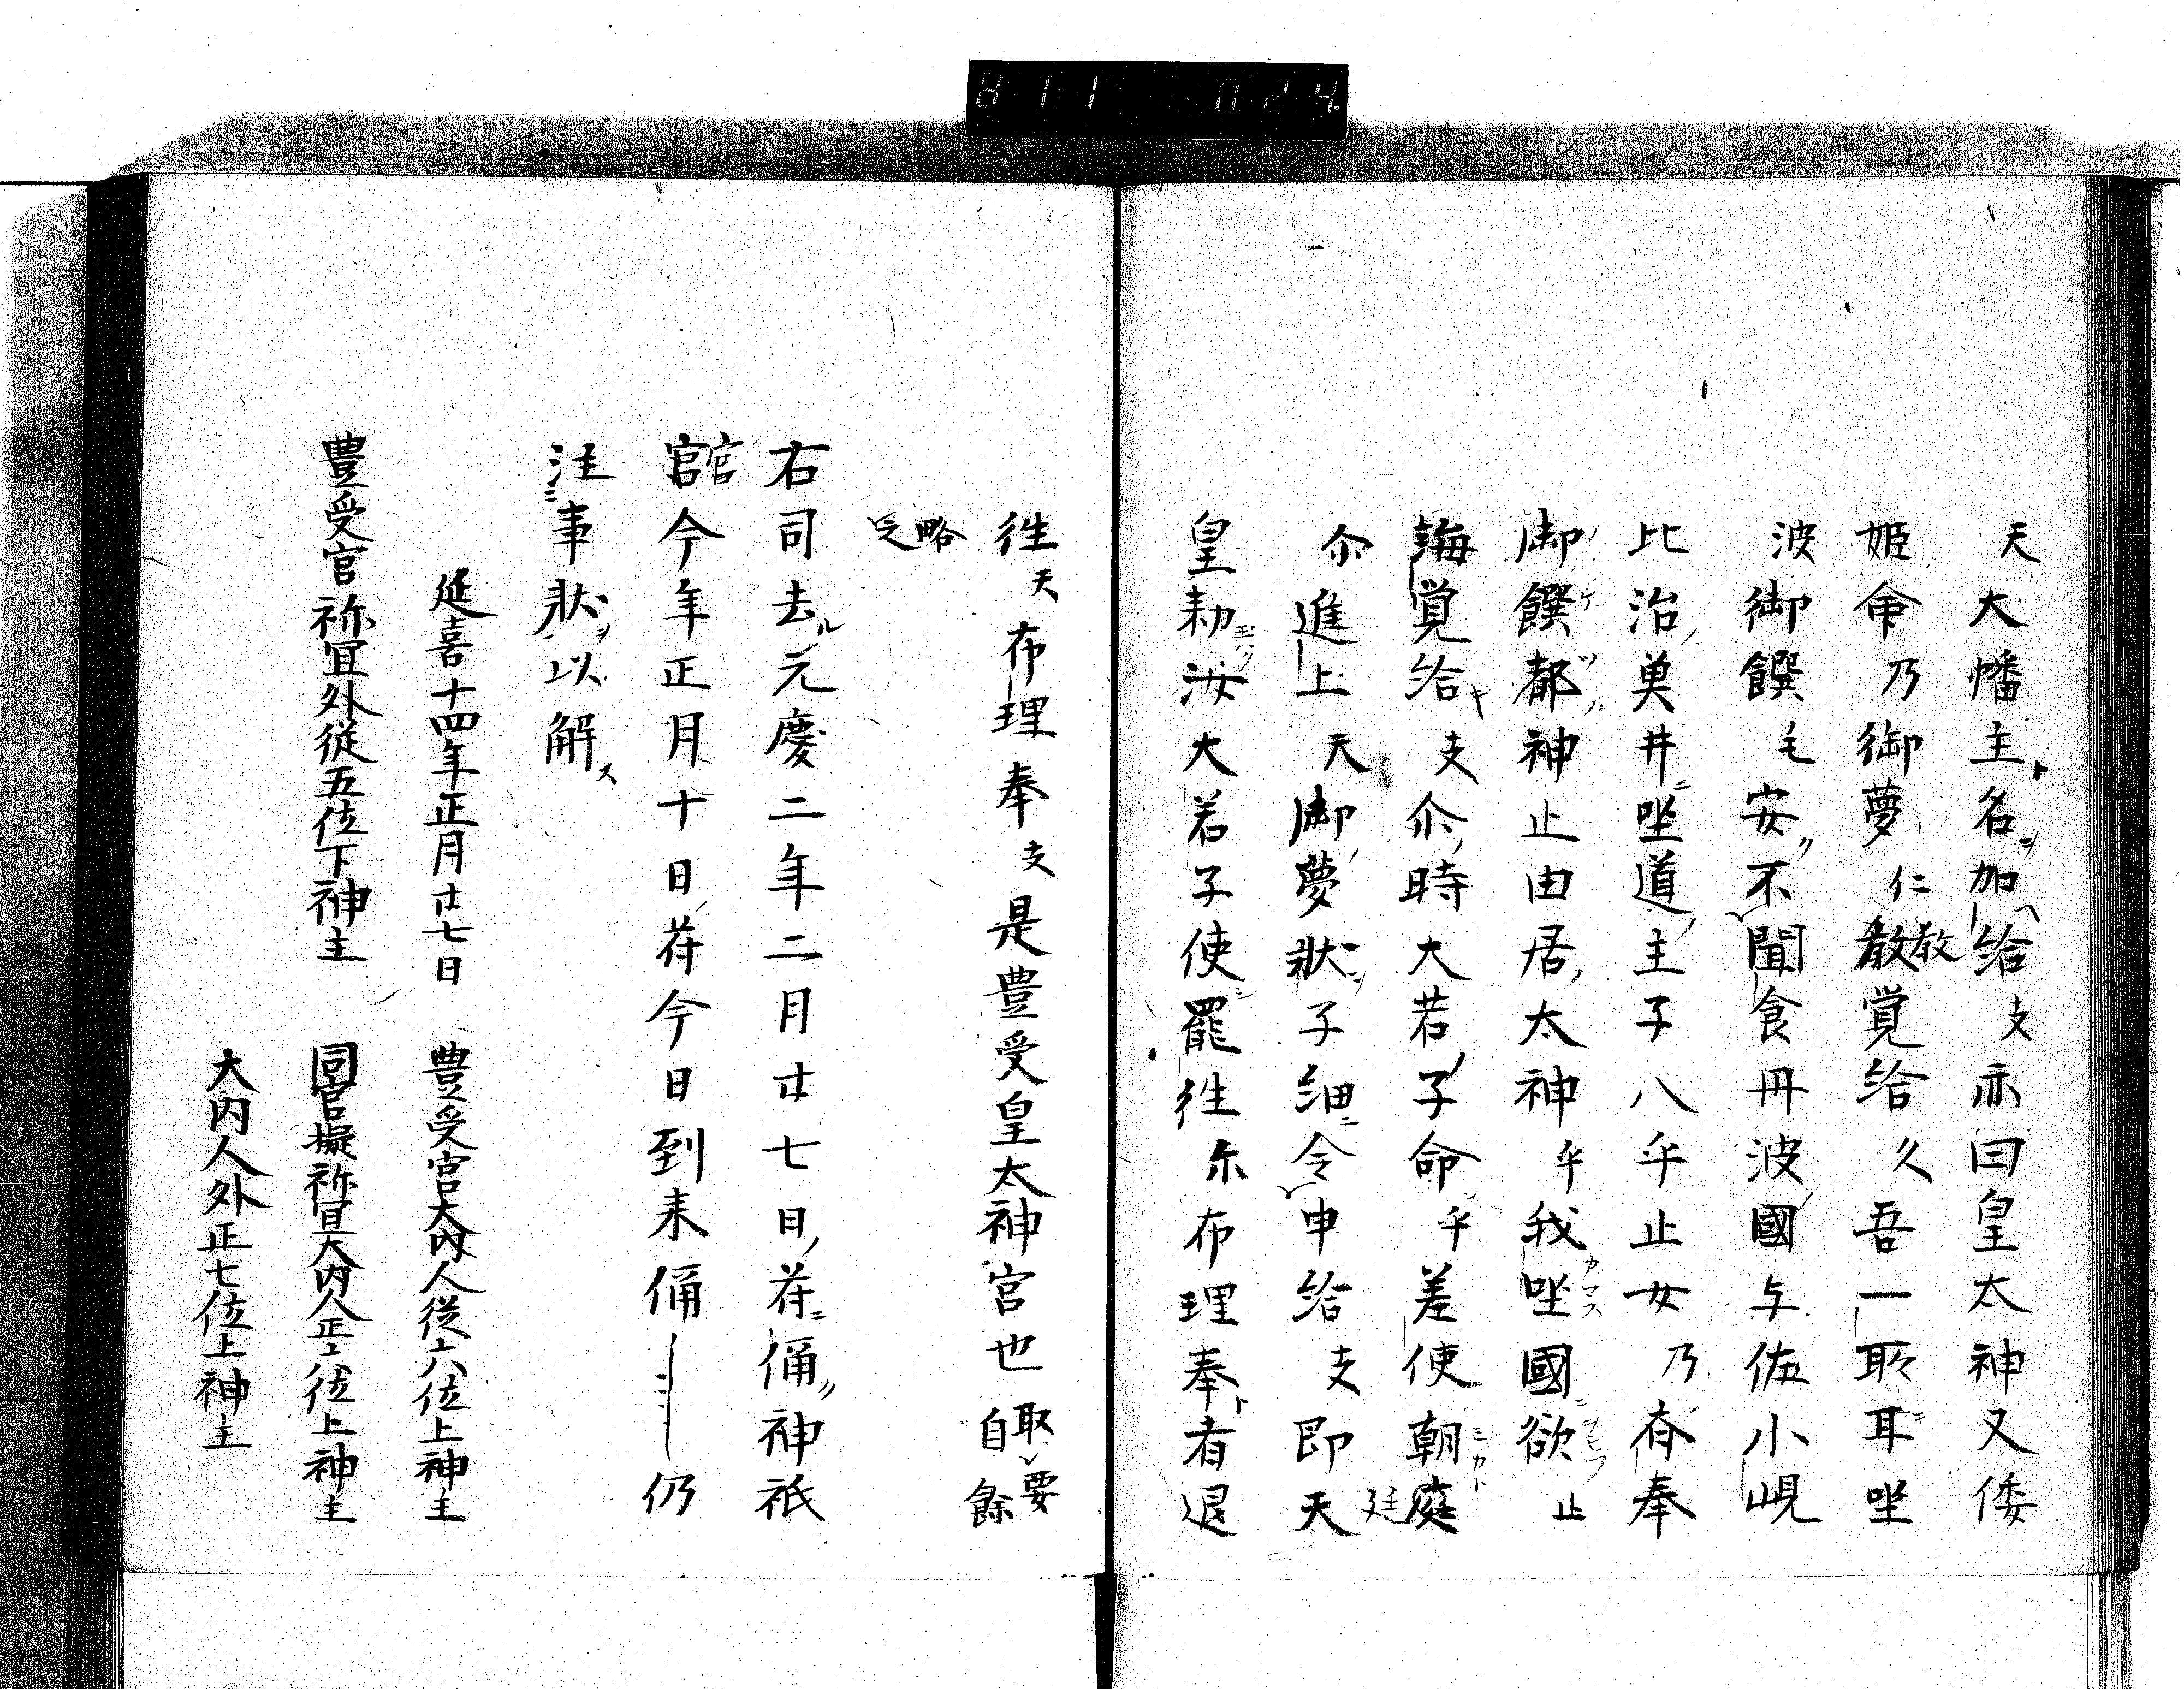 811 024
天大幡主名加給支亦曰皇太神又倭
姫命乃御夢仁教覚給久吾一所耳坐
教
波御饌毛安不聞食丹波國与佐小峴
比治真井坐道主子八乎止女乃斎奉
御饌都神止由居太神乎我坐國欲止
誨覚給支尓時大若子命乎差使朝庭
廷
尓進上天御夢状子細令申給支即天
皇勅汝大若子使罷往尓布理奉者退
往天布理奉支是豊受皇太神宮也取要自餘
略之
右司去元慶二年二月廿七日苻偁神祇
官今年正月十日苻今日到来偁仍
官
注事状以解
延喜十四年正月廿七日 豊受宮大内人従六位上神主
豊受宮祢冝外従五位下神主 同宮擬祢冝大内人正六位上神主
大内人外正七位上神主